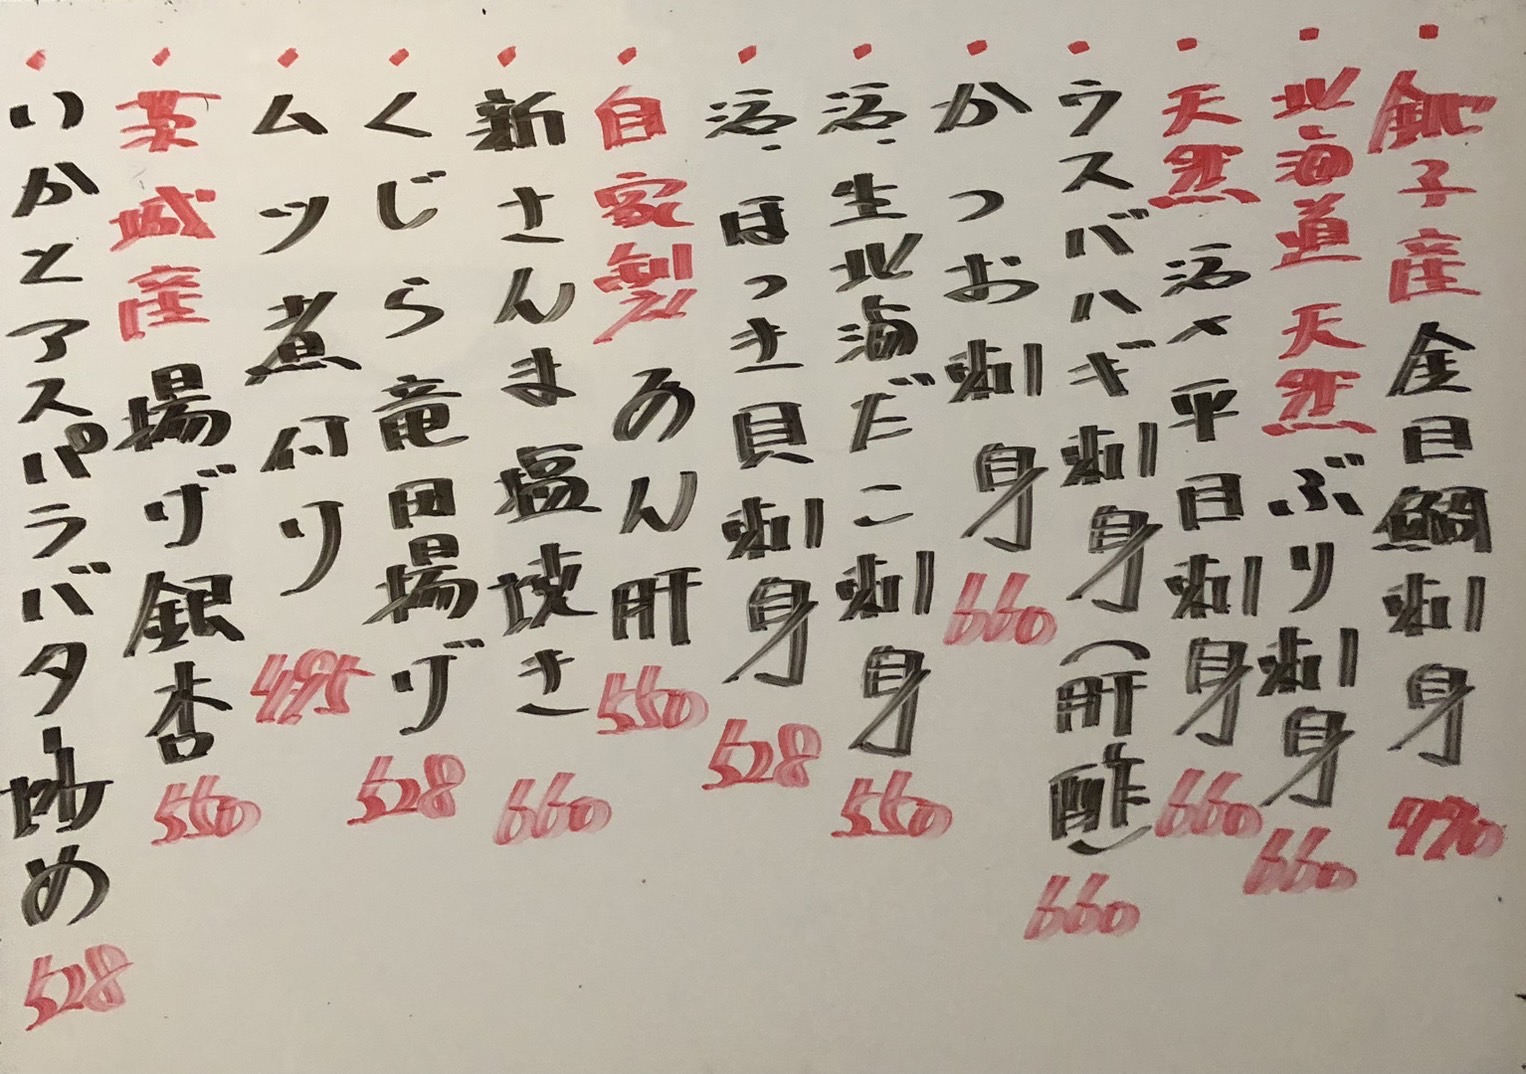 ・銚子産金目鯛刺身770
・北海道天然ぶり刺身660
・天然活〆平目刺身660
・ウスバハギ刺身(肝酢)660
・かつお刺身660
・活生北海だこ刺身550
・活ほっき貝刺身528
・自家製あん肝550
・新さんま塩焼き660
・くじら竜田揚げ528
・ムツ煮付け495
・茨城産揚げ銀杏550
・いかとアスパラバター炒め528